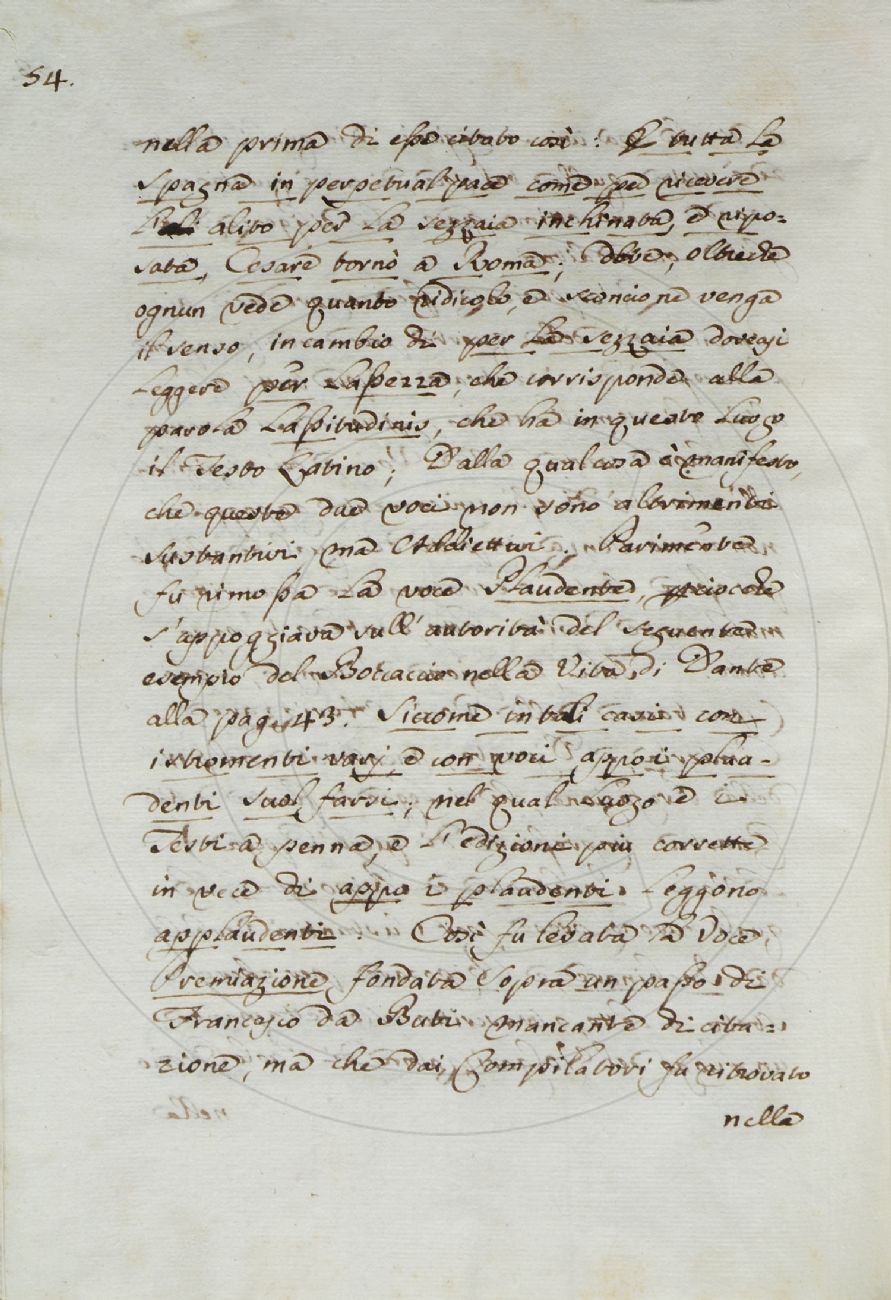 54.
nella prima di esse citato così: E tutta la
Spagna in perpetual pace come per ricevere
l' alito per la sezzaia inchinata, e ripo=
sata, Cesare tornò a Roma; dove, oltreche
ognun vede quanto ridicolo, e sconcio ne venga
il senso, in cambio di per la sezzaia dovesi
leggere per lassezza, che corrisponde alla
parola Lassitudinis, che ha in questo luogo
il Testo Latino; Dalla qual cosa è manifesto,
che queste due voci non sono altrimenti
sustantivi ma Addiettivi. Parimente
fu rimossa la voce Plaudente,
s'appoggiava sull'autorità del seguente
esempio del Boccaccio nella Vita di Dante
alla pag. 43. Siccome in tali casi con
istromenti varj, e con voci appo i plau=
denti suol farsi, nel qual luogo e i
Testi a penna, e l'edizioni più corrette
in vece di appo i plaudenti leggono
applaudenti. Così fu levata la voce
Premiazione fondata sopra un passo di
Francesco da Buti mancante di cita=
zione, ma che dai Compilatori fu ritrovato
nella